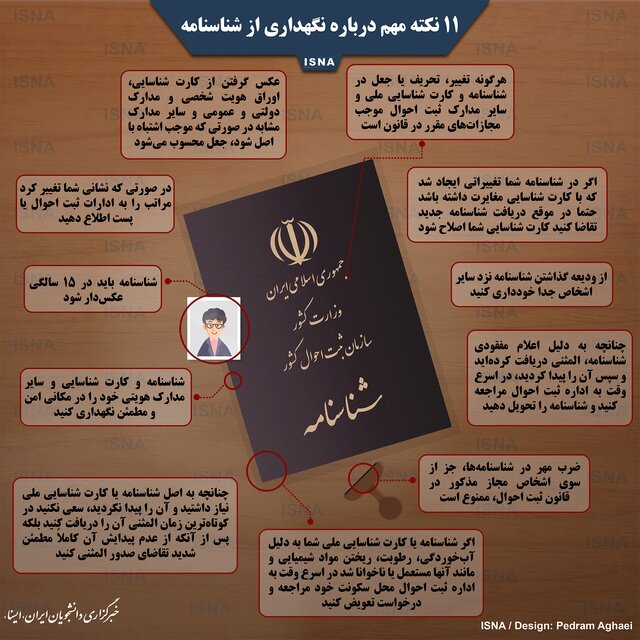 ۱۱ نکته مهم درباره نگهداری از شناسنامه
ISNA
هرگونه تغییر، تحریف یا جعل در
شناسنامه و کارت شناسایی ملی و
سایر مدارک ثبت احوال موجب
مجازات‌های مقرر در قانون است
عکس گرفتن از کارت شناسایی،
اوراق هویت شخصی و مدارک
دولتی و عمومی و سایر مدارک
مشابه در صورتی که موجب اشتباه با
اصل شود، جعل محسوب می‌شود
اگر در شناسنامه شما تغییراتی ایجاد شد
که با کارت شناسایی مغایرت داشته باشد
حتما در موقع دریافت شناسنامه جدید
تقاضا کنید کارت شناسایی شما اصلاح شود
در صورتی که نشانی شما تغییر کرد
مراتب را به ادارات ثبت احوال یا
پست اطلاع دهید
از ودیعه گذاشتن شناسنامه نزد سایر
اشخاص جدا خودداری کنید
شناسنامه باید در ۱۵ سالگی
عکس‌دار شود
جمهوری اسلامی ایران
وزارت کشور
سازمان ثبت احوال کشور
شناسنامه
چنانچه به دلیل اعلام مفقودی
شناسنامه، المثنی دریافت کرده‌اید
و سپس آن را پیدا کردید، در اسرع
وقت به اداره ثبت احوال مراجعه
کنید و شناسنامه را تحویل دهید
شناسنامه و کارت شناسایی و سایر
مدارک هویتی خود را در مکانی امن
و مطمئن نگهداری کنید
ضرب مهر در شناسنامه‌ها، جز از
سوی اشخاص مجاز مذکور در
قانون ثبت احوال، ممنوع است
چنانچه به اصل شناسنامه یا کارت شناسایی ملی
نیاز داشتید و آن را پیدا نکردید، سعی نکنید در
کوتاه‌ترین زمان المثنی آن را دریافت کنید بلکه
پس از آنکه از عدم پیدایش آن کاملاً مطمئن
شدید تقاضای صدور المثنی کنید
اگر شناسنامه یا کارت شناسایی ملی شما به دلیل
آب‌خوردگی، رطوبت، ریختن مواد شیمیایی و
مانند آنها مستعمل یا ناخوانا شد در اسرع وقت به
اداره ثبت احوال محل سکونت خود مراجعه و
درخواست تعویض کنید
خبرگزاری دانشجویان ایران. ایسنا.
ISNA / Design: Pedram Aghaei